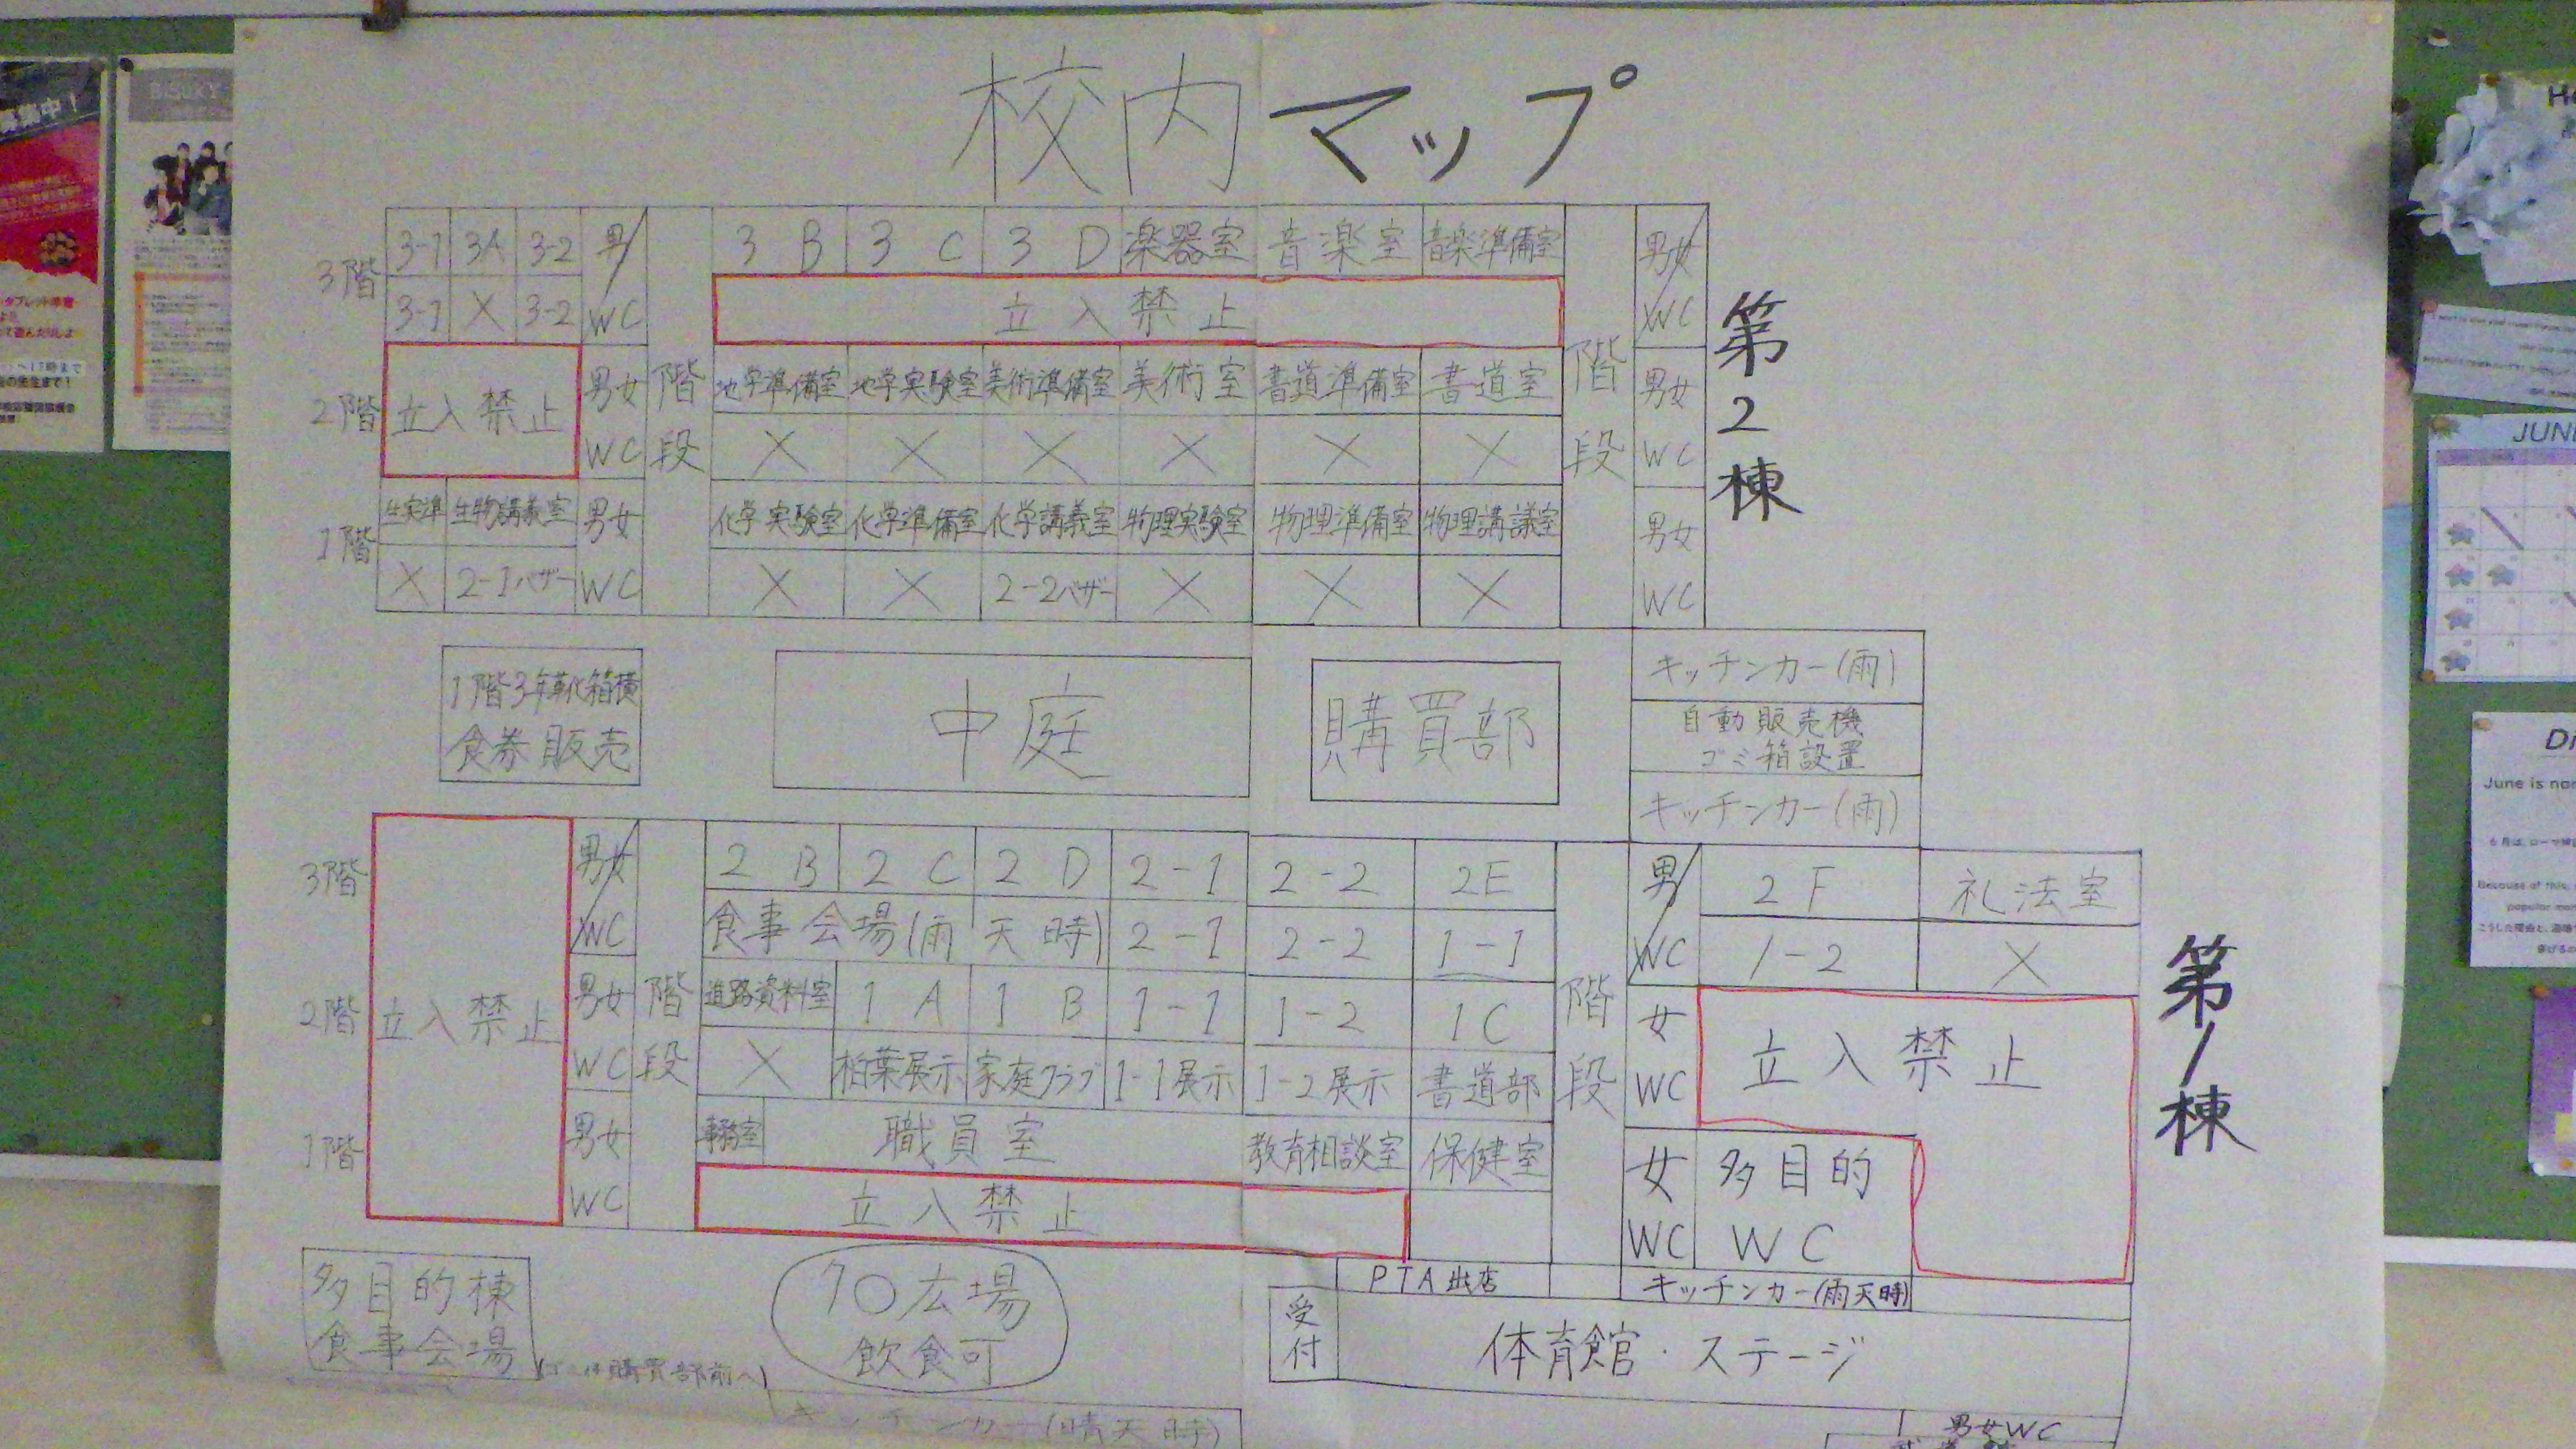 校内マップ
3-1 3A 3-2 男 3B 3C 3D 楽器室 音楽室 音楽準備室 男女
3階
3-1 × 3-2 WC 立入禁止 WC
第2棟
2階 立入禁止 男女 階段 地学準備室 地学実験室 美術準備室 美術室 書道準備室 書道室 階段 男女
WC × × × × × × WC
1階 生実準 生物講義室 男女 化学実験室 化学準備室 化学講義室 物理実験室 物理準備室 物理講議室 男女
× 2-1バザー WC × × 2-2バザー × × × WC
1階3年靴箱横
食券販売
中庭
購買部
キッチンカー(雨)
自動販売機
ゴミ箱設置
キッチンカー(雨)
3階 男女 2B 2C 2D 2-1 2-2 2E 男 2F 礼法室
WC 食事会場(雨天時) 2-1 2-2 1-1 WC 1-2 ×
第1棟
2階 立入禁止 男女 階段 進路資料室 1A 1B 1-1 1-2 1C 階段 女 立入禁止
WC × 柏葉展示 家庭クラブ 1-1展示 1-2展示 書道部 WC
1階 男女 事務室 職員室 教育相談室 保健室 女 多目的
WC 立入禁止 WC WC
多目的棟
食事会場
70広場
飲食可
PTA出店
キッチンカー(雨天時)
受付
体育館・ステージ
購買部前へ)
キッチンカー(晴天時)
男女WC
募集中!
JUNE
June is
Because of this,
popular
6月は、